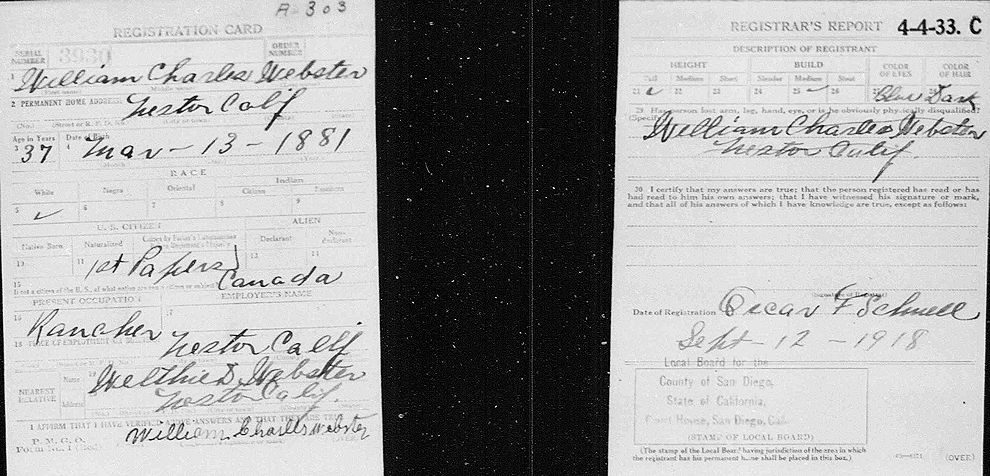 A-303
REGISTRATION CARD
SERIAL NUMBER 3930 ORDER NUMBER
1 William Charles Webster
2 PERMANENT HOME ADDRESS: Nestor Calif
Age in Years Date of Birth
3 37 4 Mar - 13 - 1881
RACE
White Negro Oriental Indian
Citizen
5 ✓ 6 7 8 9
U. S. CITIZEN ALIEN
Native Born Naturalized Declarant Non-declarant
10 11 12 13 14
1st Papers
15 If not a citizen of the U. S., of what nation are you a citizen or subject? Canada
PRESENT OCCUPATION EMPLOYER'S NAME
16 Rancher 17
18 PLACE OF EMPLOYMENT OR Nestor Calif
NEAREST RELATIVE Name 19 Welthie D. Webster
Address Nestor Calif.
I AFFIRM THAT I HAVE VERIFIED ABOVE ANSWERS AND THAT THEY ARE TRUE
P. M. G. O.
Form No. 1 William Charles Webster
REGISTRAR'S REPORT 4-4-33. C
DESCRIPTION OF REGISTRANT
HEIGHT BUILD COLOR OF EYES COLOR OF HAIR
Tall Medium Short Slender Medium Stout
21 ✓ 22 23 24 25 ✓ 26 27 Blue 28 Dark
29 Has person lost arm, leg, hand, eye, or is he obviously physically disqualified?
(Specify)
William Charles Webster
Nestor Calif.
30 I certify that my answers are true; that the person registered has read or has
had read to him his own answers; that I have witnessed his signature or mark,
and that all of his answers of which I have knowledge are true, except as follows:
Oscar F Schnell
(Signature of Registrar)
Date of Registration Sept - 12 - 1918
Local Board for the
County of San Diego,
State of California,
Court House, San Diego, Cal.
(STAMP OF LOCAL BOARD)
(The stamp of the Local Board having jurisdiction of the area in which
the registrant has his permanent home shall be placed in this box.)
(OVER)